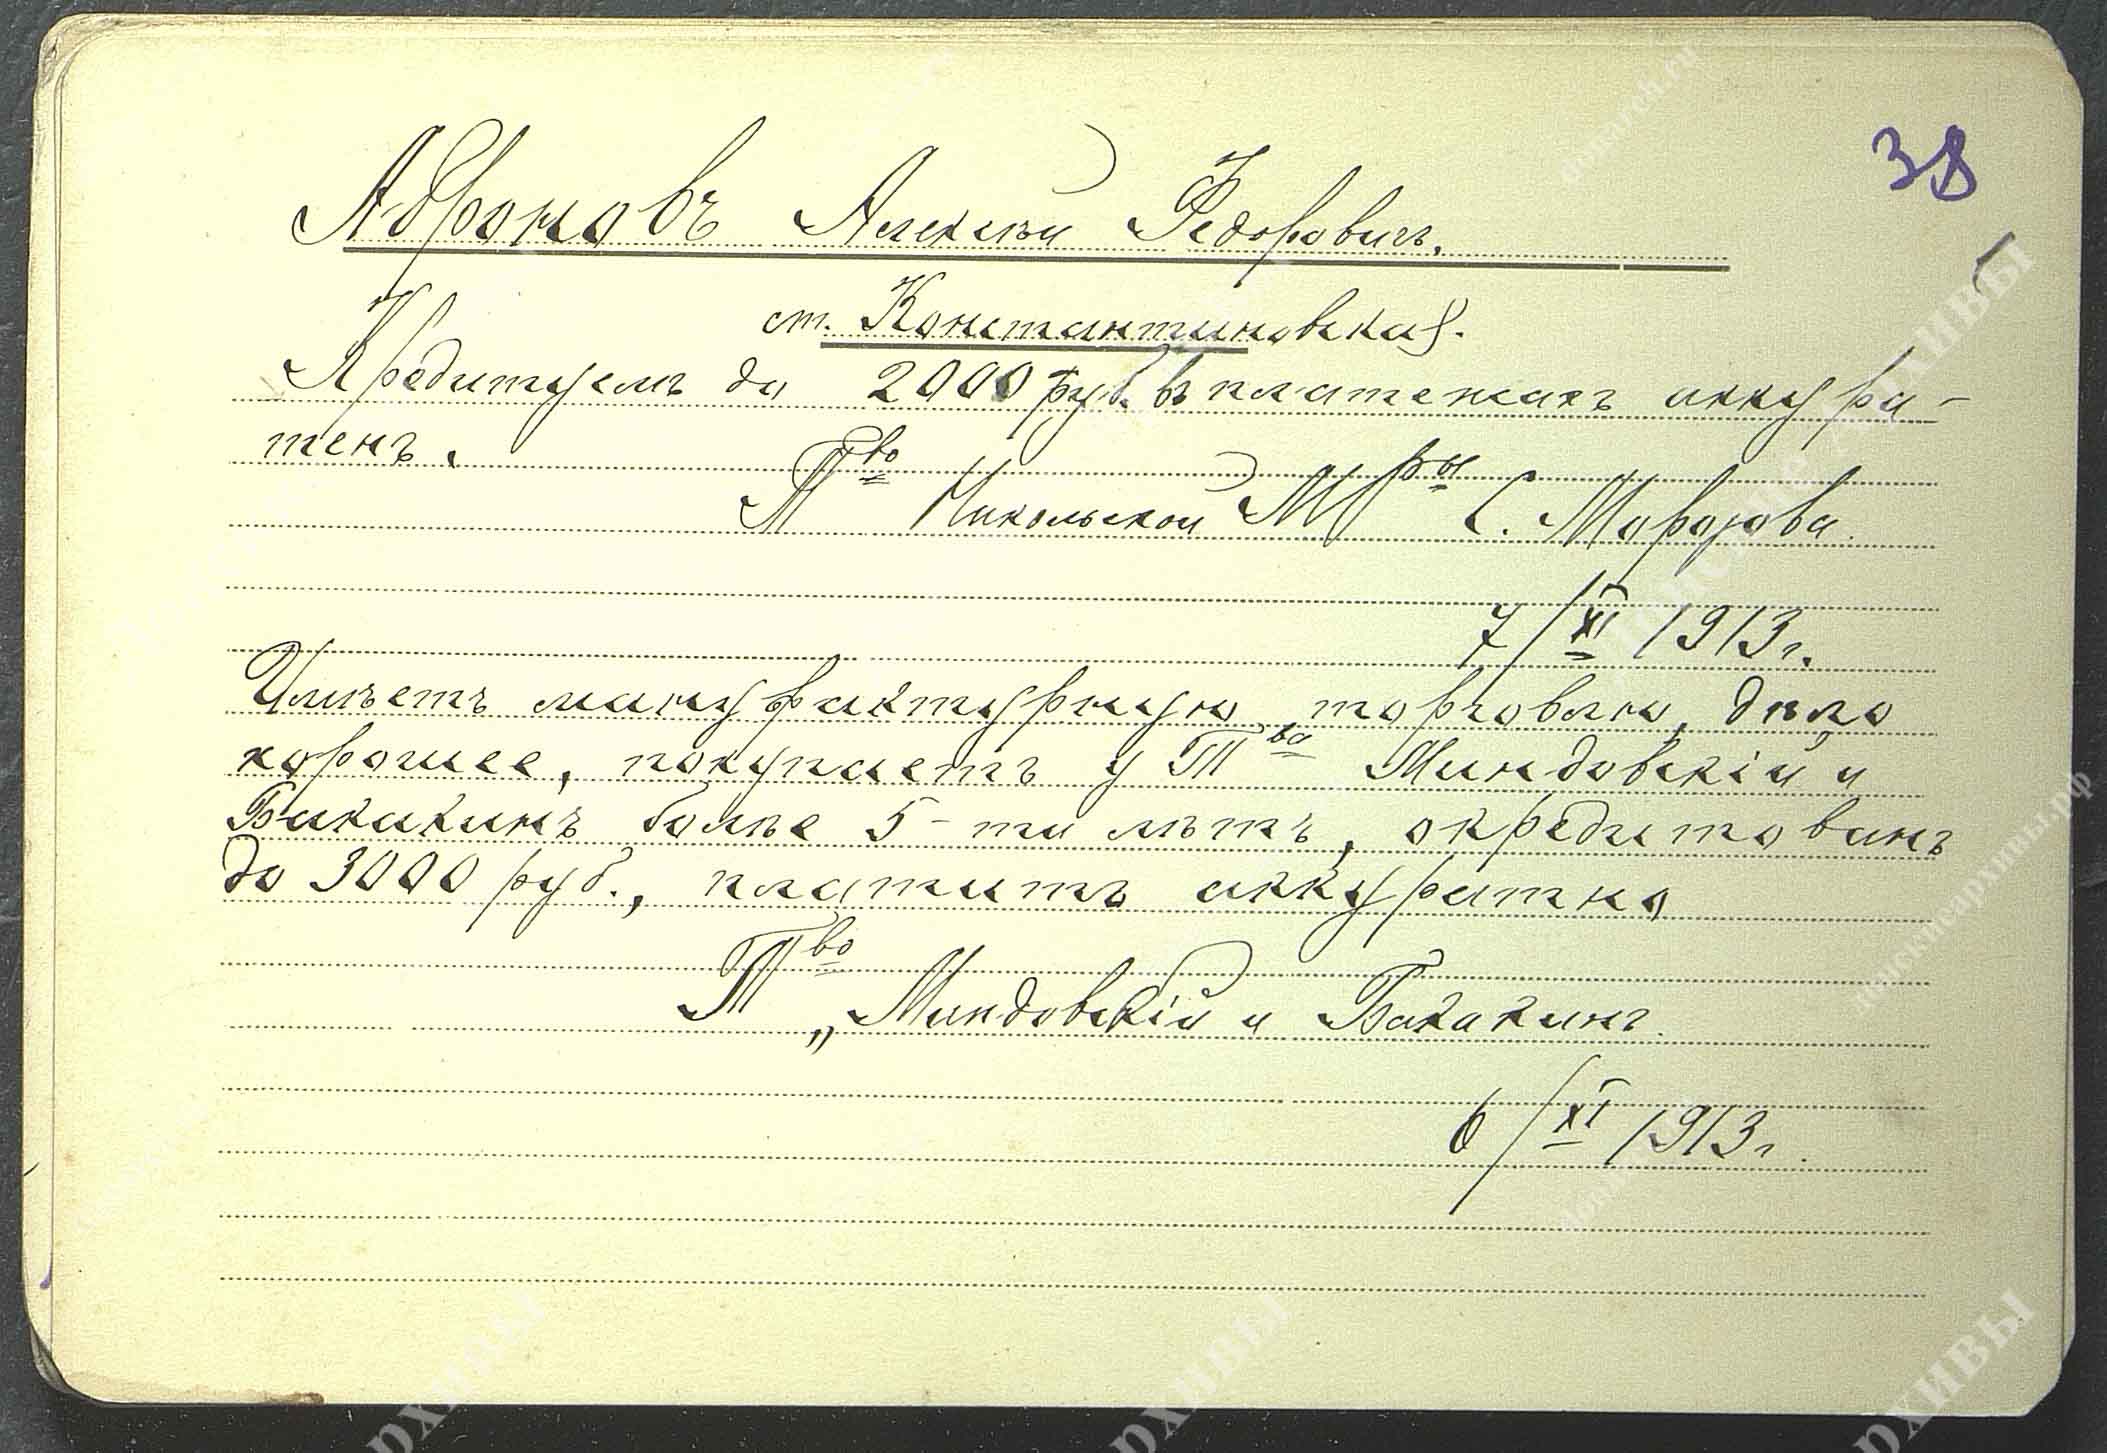 38
Афоновъ Алексѣй Федоровичъ.
ст. Константиновская.
Кредитуемъ до 2000 руб. въ платежахъ аккура-
тенъ.
Тво Никольской М-ры С. Морозова.
7/XI 1913 г.
Имѣетъ мануфактурную торговлю, дѣло
хорошее, покупаетъ у Тва Миндовскій и
Бакакинъ болѣе 5-ти лѣтъ, окредитованъ
до 3000 руб., платитъ аккуратно
Тво „Миндовскій и Бакакинъ.
6/XI 1913 г.